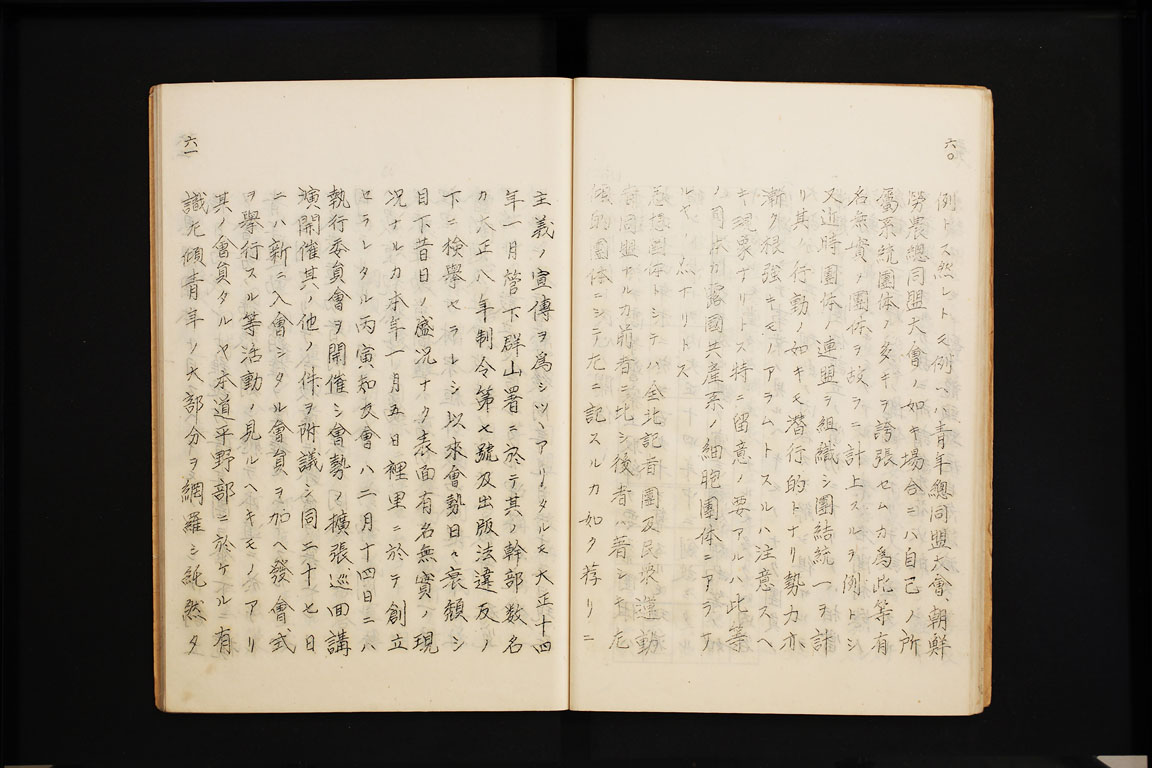 六〇
例トス然レトモ例ヘハ青年總同盟大會、朝鮮
勞農總同盟大會ノ如キ場合ニハ自己ノ所
屬系統團体ノ多キヲ誇張セムカ為此等有
名無實ノ團体ヲ故ラニ計上スルヲ例トシ
又近時團体ノ連盟ヲ組織シ團結統一ヲ計
リ其ノ行動ノ如キモ潜行的トナリ勢力亦
漸ク根強キモノアラムトスルハ注意スヘ
キ現象ナリトス特ニ留意ノ要アルハ此等
ノ團体カ露國共産系ノ細胞團体ニアラサ
ルヤノ点ナリトス
思想團体トシテハ全北記者團及民衆運動
者同盟アルカ前者ニ比シ後者ハ著シキ左
傾的團体ニシテ左ニ記スルカ如ク荐リニ
六一
主義ノ宣傳ヲ為シツヽアリタルモ大正十四
年一月管下群山署ニ於テ其ノ幹部数名
カ大正八年制令第七號及出版法違反ノ
下ニ検擧セラレシ以来會勢日々衰頽シ
目下昔日ノ盛况ナク表面有名無實ノ現
况ナルカ本年一月五日裡里ニ於テ創立
セラレタル丙寅知友會ハ二月十四日ニハ
執行委員會ヲ開催シ會勢ノ擴張巡回講
演開催其ノ他ノ件ヲ附議シ同二十七日
ニハ新ニ入會シタル會員ヲ加ヘ發會式
ヲ擧行スル等活動ノ見ルヘキモノアリ
其ノ會員タルヤ本道平野部ニ於ケル有
識左傾青年ノ大部分ヲ網羅シ純然タ